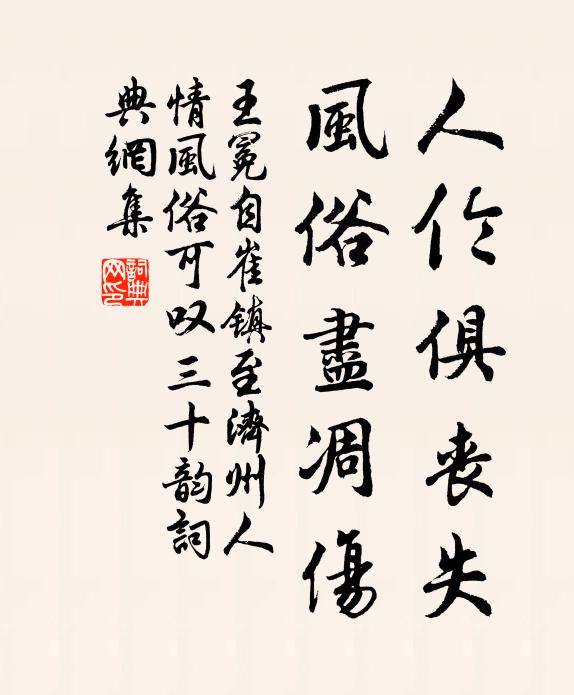 人伦俱喪失
風俗盡凋傷
王冕自崔鎮至濟州人
情風俗可叹三十韵詞
典網集
詞典网印